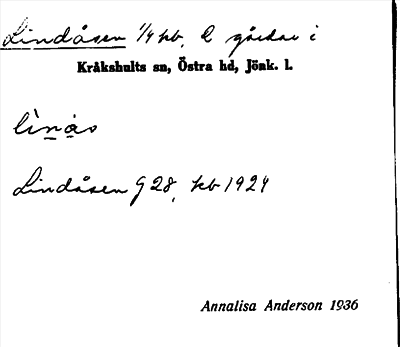 Lindåsen 1/4 kb, 2 gårdar i
Kråkshults sn, Östra hd, Jönk. l.
lìnås
Lindåsen G 28, kb 1924
Annalisa Anderson 1936